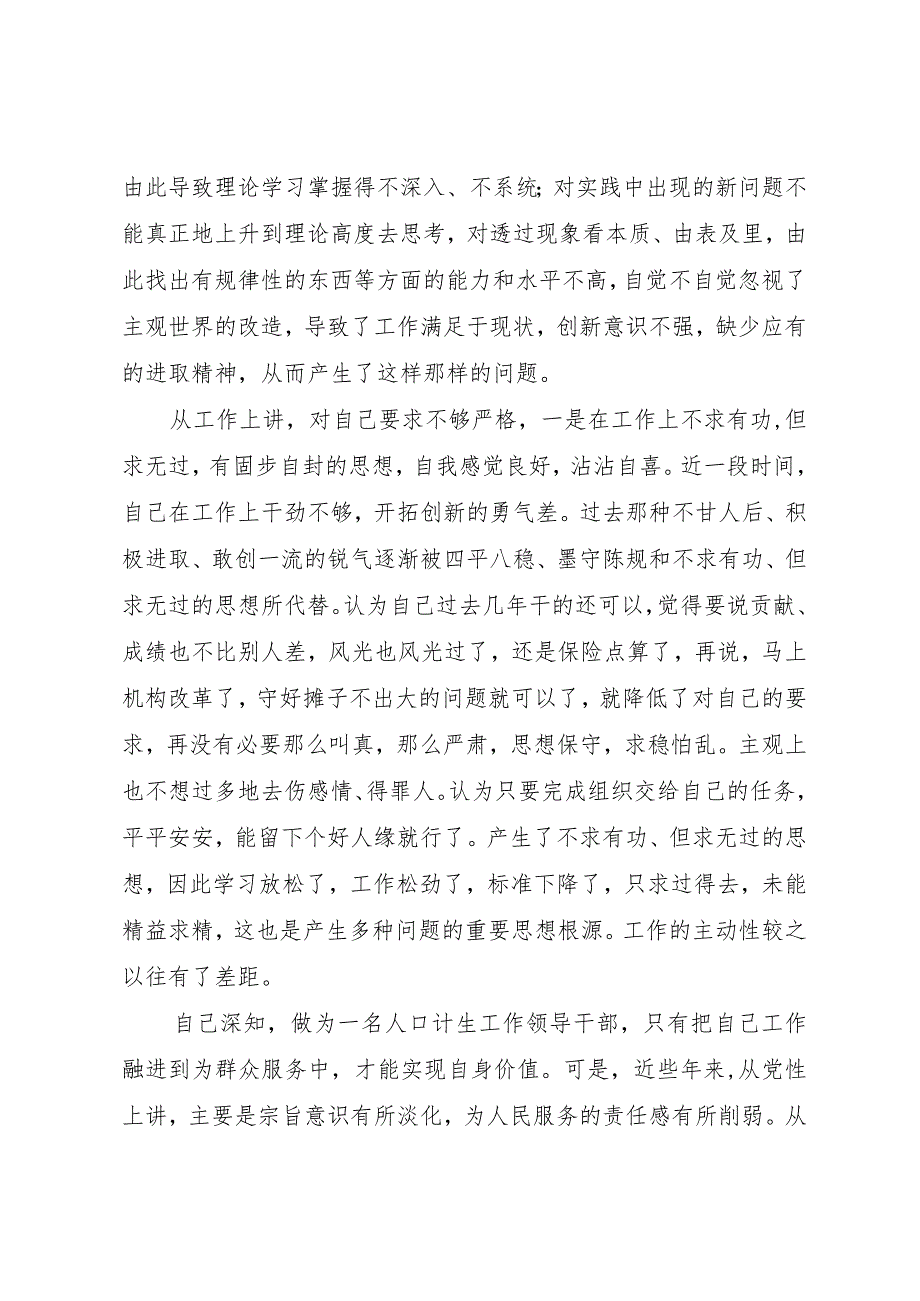 由此导致理论学习掌握得不深入、不系统；对实践中出现的新问题不
能真正地上升到理论高度去思考，对透过现象看本质、由表及里，由
此找出有规律性的东西等方面的能力和水平不高，自觉不自觉忽视了
主观世界的改造，导致了工作满足于现状，创新意识不强，缺少应有
的进取精神，从而产生了这样那样的问题。
从工作上讲，对自己要求不够严格，一是在工作上不求有功,但
求无过，有固步自封的思想，自我感觉良好，沾沾自喜。近一段时间，
自己在工作上干劲不够，开拓创新的勇气差。过去那种不甘人后、积
极进取、敢创一流的锐气逐渐被四平八稳、墨守陈规和不求有功、但
求无过的思想所代替。认为自己过去几年干的还可以，觉得要说贡献、
成绩也不比别人差，风光也风光过了，还是保险点算了，再说，马上
机构改革了，守好摊子不出大的问题就可以了，就降低了对自己的要
求，再没有必要那么叫真，那么严肃，思想保守，求稳怕乱。主观上
也不想过多地去伤感情、得罪人。认为只要完成组织交给自己的任务，
平平安安，能留下个好人缘就行了。产生了不求有功、但求无过的思
想，因此学习放松了，工作松劲了，标准下降了，只求过得去，未能
精益求精，这也是产生多种问题的重要思想根源。工作的主动性较之
以往有了差距。
自己深知，做为一名人口计生工作领导干部，只有把自己工作
融进到为群众服务中，才能实现自身价值。可是，近些年来,从党性
上讲，主要是宗旨意识有所淡化，为人民服务的责任感有所削弱。从